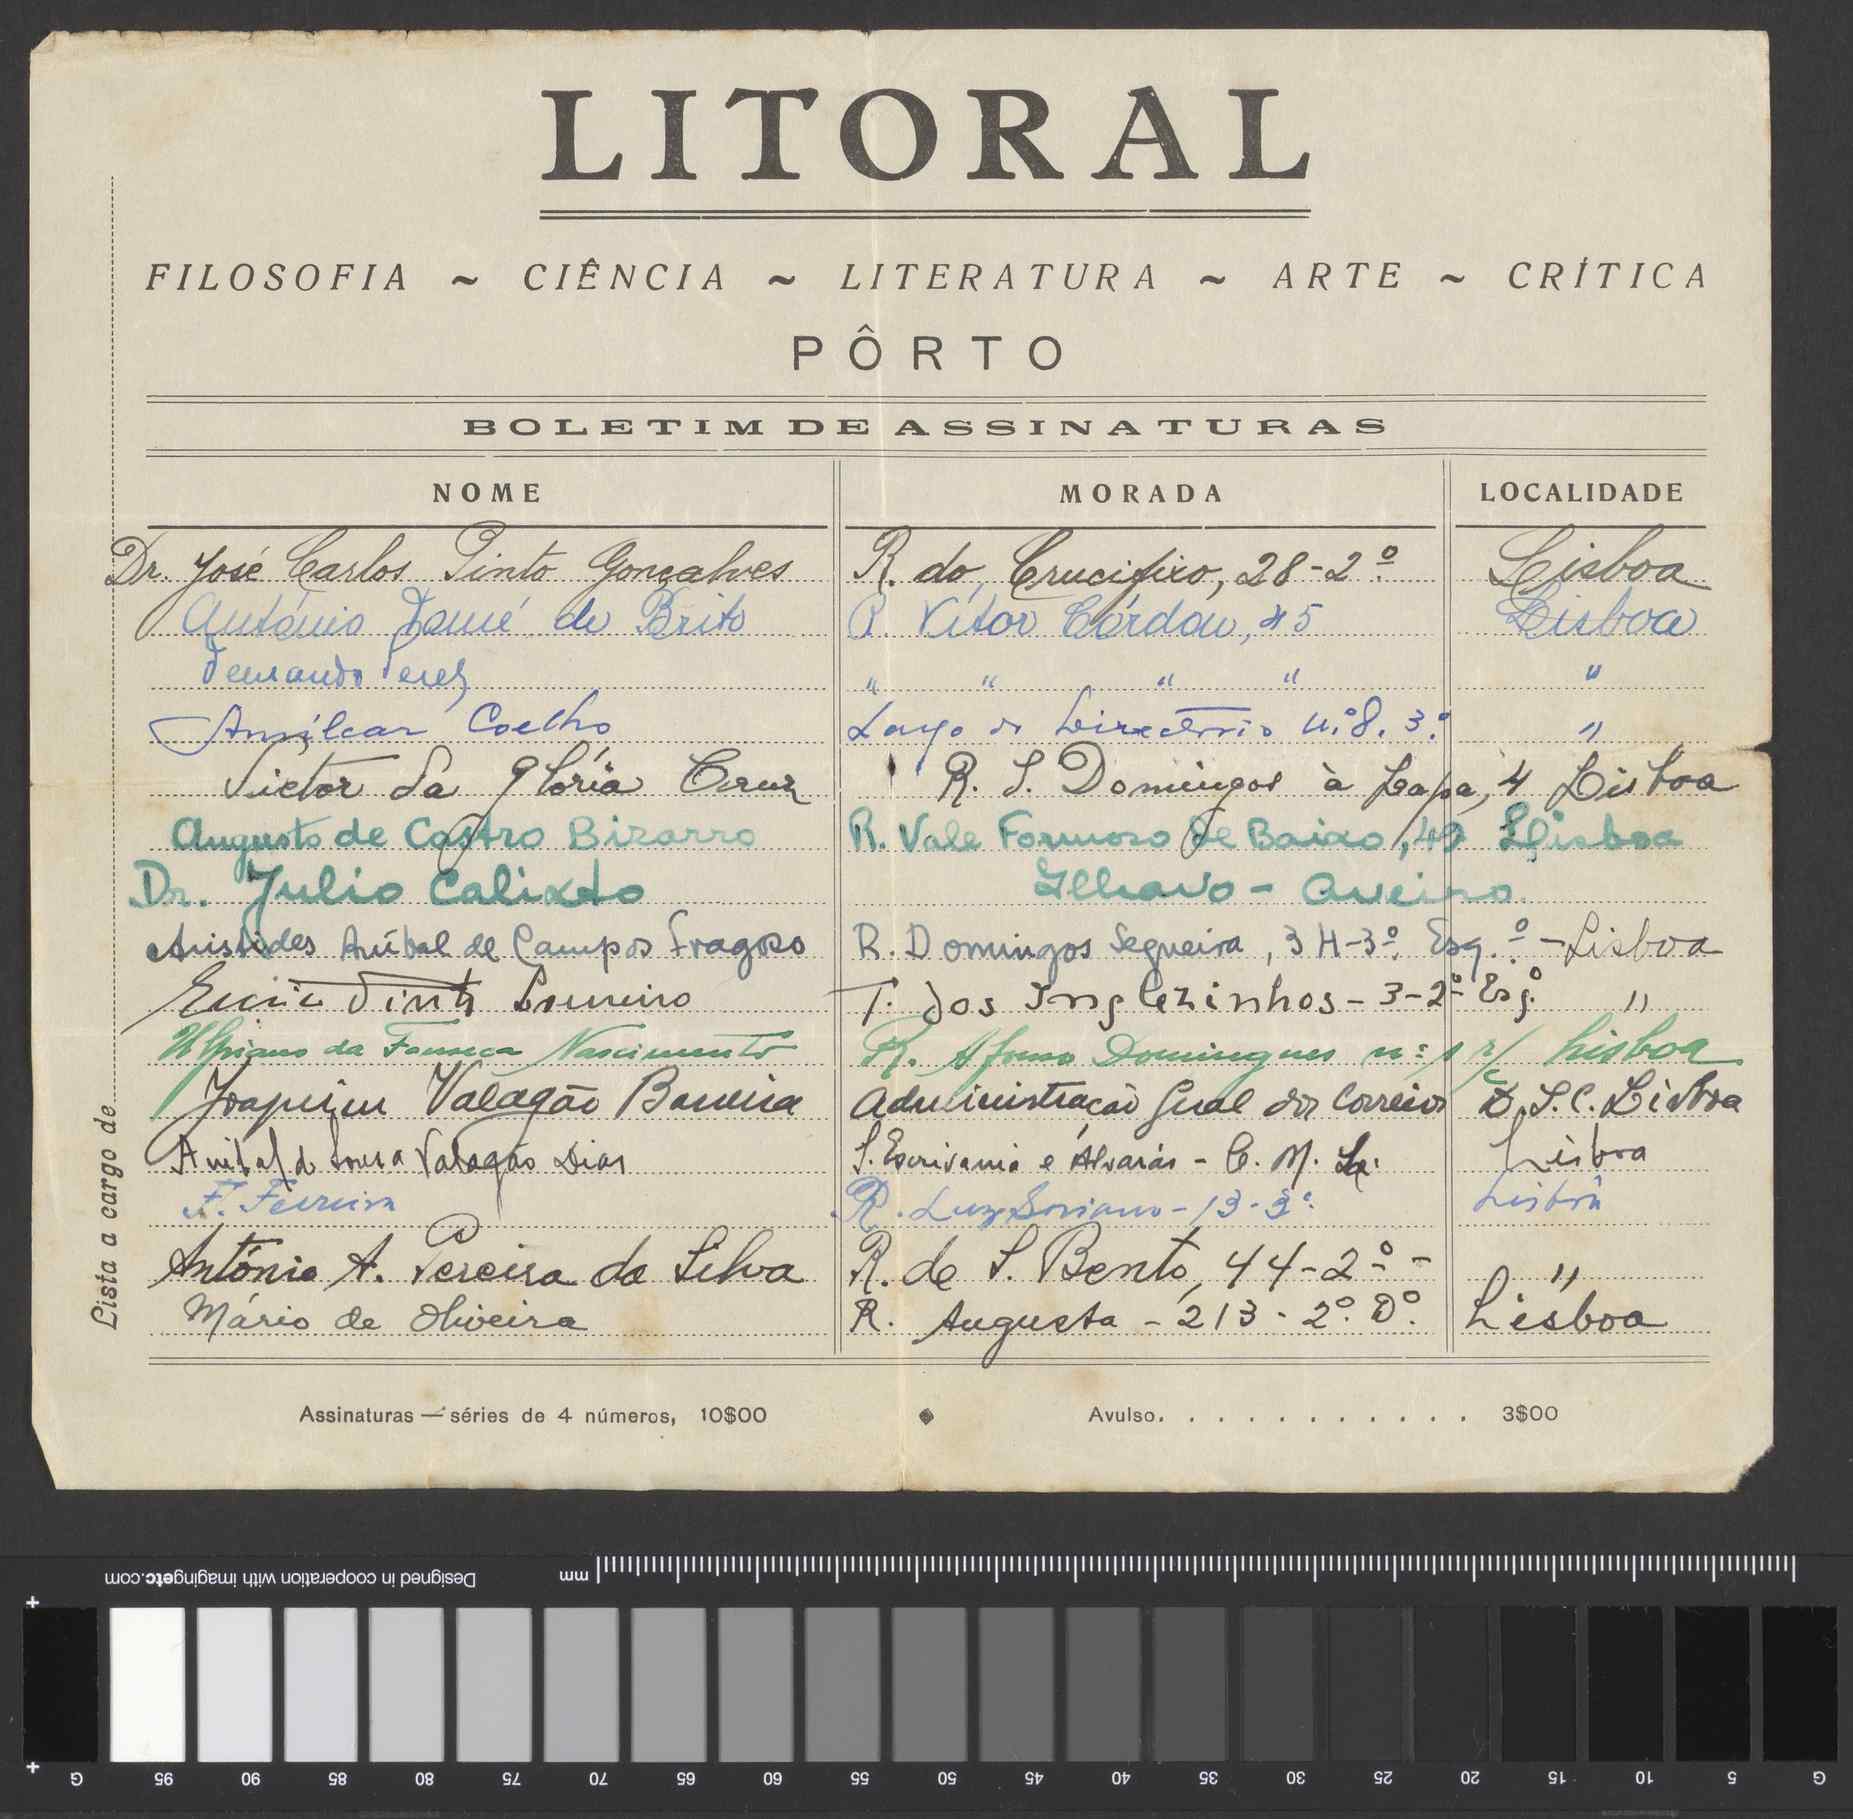 LITORAL
FILOSOFIA ~ CIÊNCIA ~ LITERATURA ~ ARTE ~ CRÍTICA
PÔRTO
BOLETIM DE ASSINATURAS
NOME MORADA LOCALIDADE
Dr. José Carlos Pinto Gonçalves R. do Crucifixo, 28-2º Lisboa
António Tomé de Brito R. Vítor Córdon, 45 Lisboa
Fernando Perez " " " " "
Amílcar Coelho Largo do Directório n.º 8. 3.º "
Victor da Glória Cruz R. S. Domingos à Lapa, 4 Lisboa
Augusto de Castro Bizarro R. Vale Formoso de Baixo, 49 Lisboa
Dr. Julio Calixto Ilhavo - Aveiro
Aristides Aníbal de Campos Fragoso R. Domingos Sequeira, 3 H-3º. Esq.º - Lisboa
Pinto Loureiro T. dos Inglezinhos - 3-2º Esq.º "
Ulpiano da Fonseca Nascimento R. Afonso Domingues n.º r/c Lisboa
Joaquim Valagão Barreira Administração Geral dos Correios D.S.C. Lisboa
Anibal de Sousa Valagão Dias S. Escrivania e Alvarás - C. M. Lx. Lisboa
F. Ferreira R. Luz Soriano - 13-3º. Lisboa
António A. Pereira da Silva R. de S. Bento, 44-2º - "
Mário de Oliveira R. Augusta - 213 - 2º. Dº. Lisboa
Lista a cargo de
Assinaturas — séries de 4 números, 10$00 Avulso. . . . . . . . . . . . 3$00
Designed in cooperation with imagingetc.com mm
G 95 90 85 80 75 70 65 60 55 50 45 40 35 30 25 20 15 10 5 G